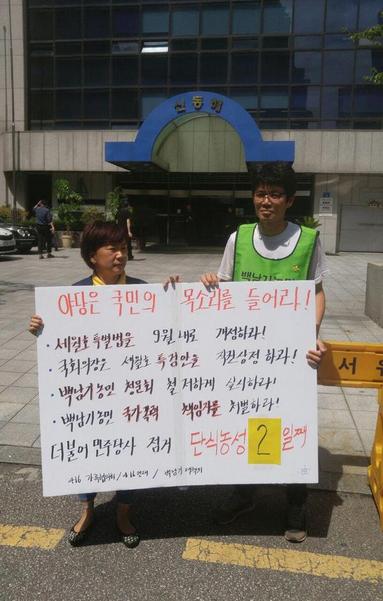 신동해
백남기농민
야당은 국민의 목소리를 들어라!
• 세월호 특별법을 9월 내로 개정하라!
• 국회의장은 세월호 특검안을 직권상정 하라!
• 백남기농민 청문회 철저하게 실시하라!
• 백남기농민 국가폭력 책임자를 처벌하라!
더불어 민주당사 점거 단식농성 2 일째
4.16 가족협의회 / 4.16 연대 / 백남기
서울